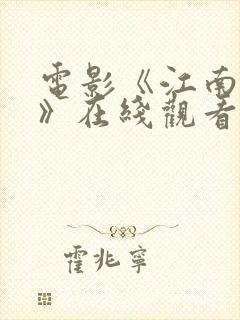 電影《江南
》在綫觀看
霍兆寧